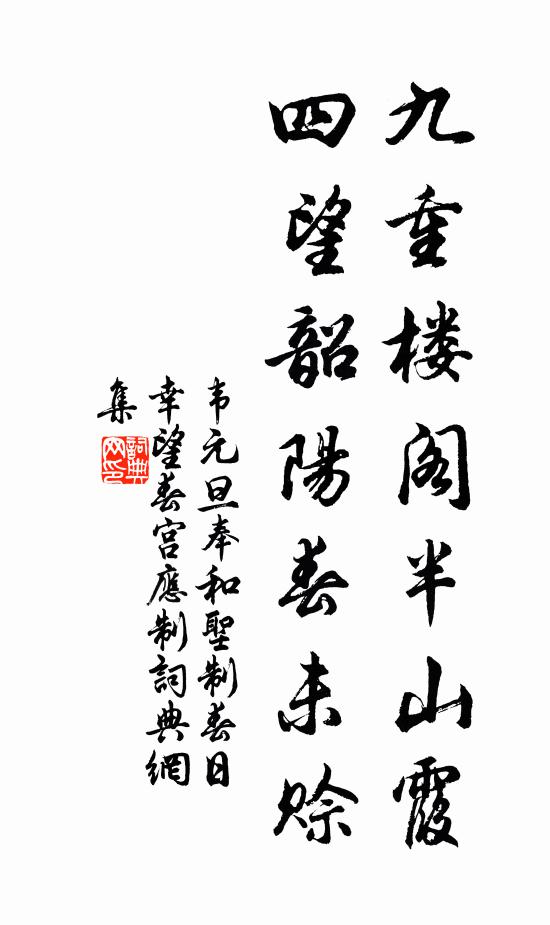 九重楼阁半山霞
四望韶陽春未赊
韦元旦奉和聖制春日
幸望春宫應制詞典網
集
詞典
网印